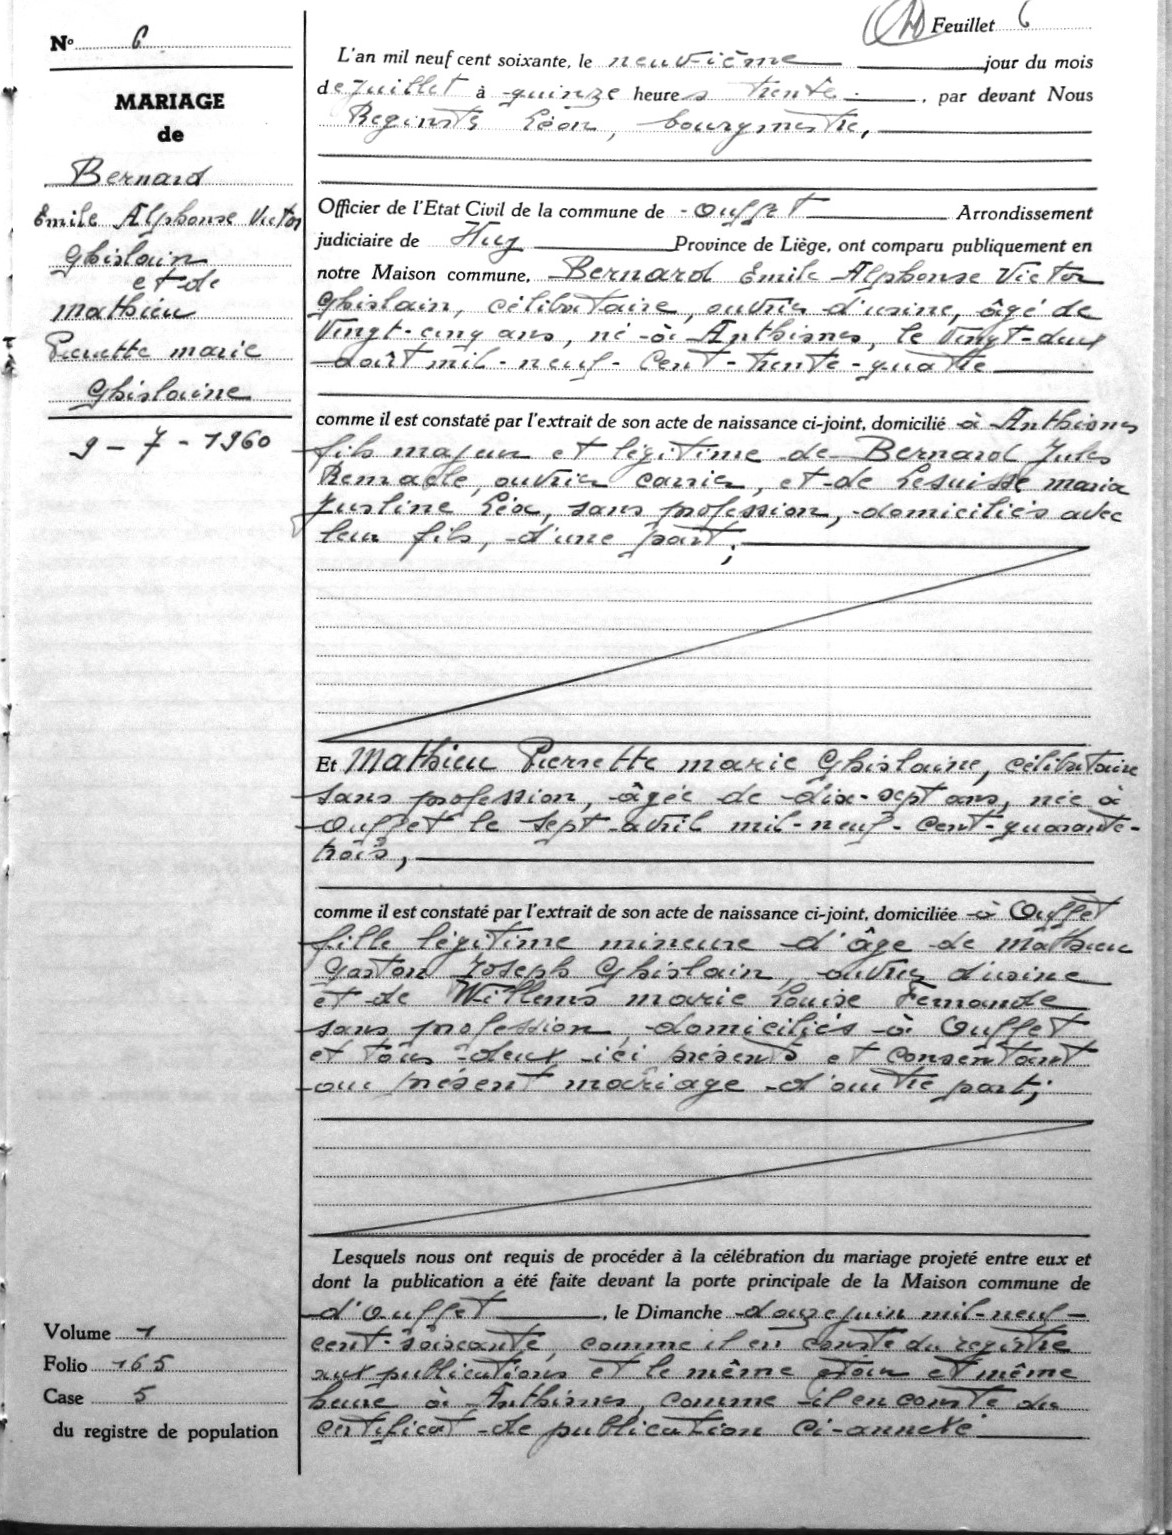 Feuillet 6
N° 6
MARIAGE
de
Bernard
Emile Alphonse Victor
Ghislain
et de
Mathieu
Pierrette Marie
Ghislaine
9 - 7 - 1960
L'an mil neuf cent soixante, le neuvième jour du mois
de Juillet à quinze heures trente, par devant Nous
Léon, bourgmestre,
Officier de l'Etat Civil de la commune de Ouffet Arrondissement
judiciaire de Huy Province de Liège, ont comparu publiquement en
notre Maison commune, Bernard Emile Alphonse Victor
Ghislain, célibataire, ouvrier d'usine, âgé de
Vingt-cinq ans, né à Anthisnes, le Vingt-deux
août mil-neuf-cent-trente-quatre
comme il est constaté par l'extrait de son acte de naissance ci-joint, domicilié à Anthisnes
fils majeur et légitime de Bernard Jules
Remacle, ouvrier carrier, et de Lesuisse Maria
Léa, sans profession, domiciliés avec
leur fils, d'une part;
Et Mathieu Pierrette Marie Ghislaine, célibataire
sans profession, âgée de dix-sept ans, née à
Ouffet le sept avril mil-neuf-cent-quarante-
trois,
comme il est constaté par l'extrait de son acte de naissance ci-joint, domiciliée à Ouffet
fille légitime mineure d'âge de Mathieu
Gaston Joseph Ghislain, ouvrier d'usine
et de Willems Marie Louise Fernande
sans profession, domiciliés à Ouffet
et tous deux ici présents et consentant
au présent mariage d'autre part;
Lesquels nous ont requis de procéder à la célébration du mariage projeté entre eux et
dont la publication a été faite devant la porte principale de la Maison commune de
d'Ouffet, le Dimanche douze juin mil-neuf-
cent-soixante, comme il en conste du registre
aux publications et le même jour et même
heure à Anthisnes, comme il en conste du
certificat de publication ci-annexé
Volume 1
Folio 165
Case 5
du registre de population